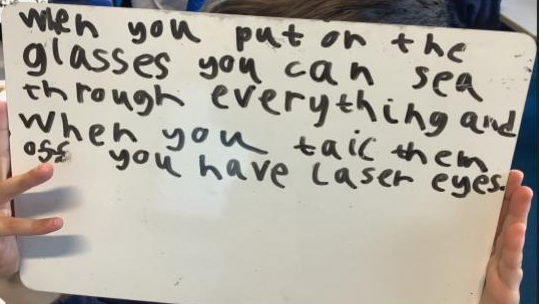 when you put on the
glasses you can sea
through everything and
when you taic them
off you have laser eyes.